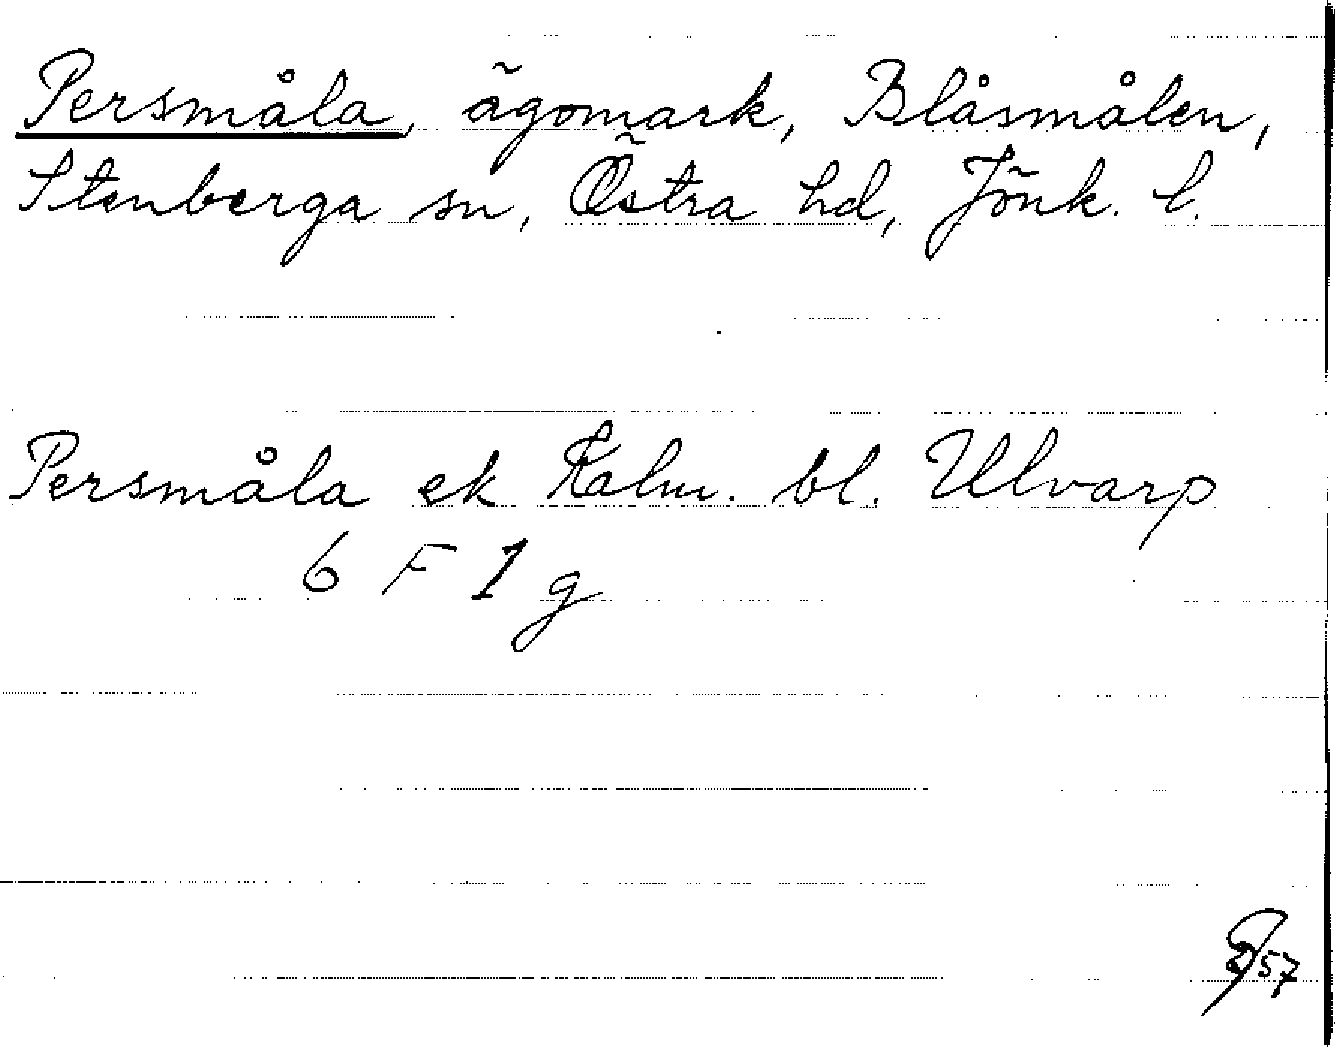 Persmåla, ägomark, Blåsmålen,
Stenberga sn, Östra hd, Jönk. l.
Persmåla ek Kalm. bl. Ulvarp
6 F 1 g
57